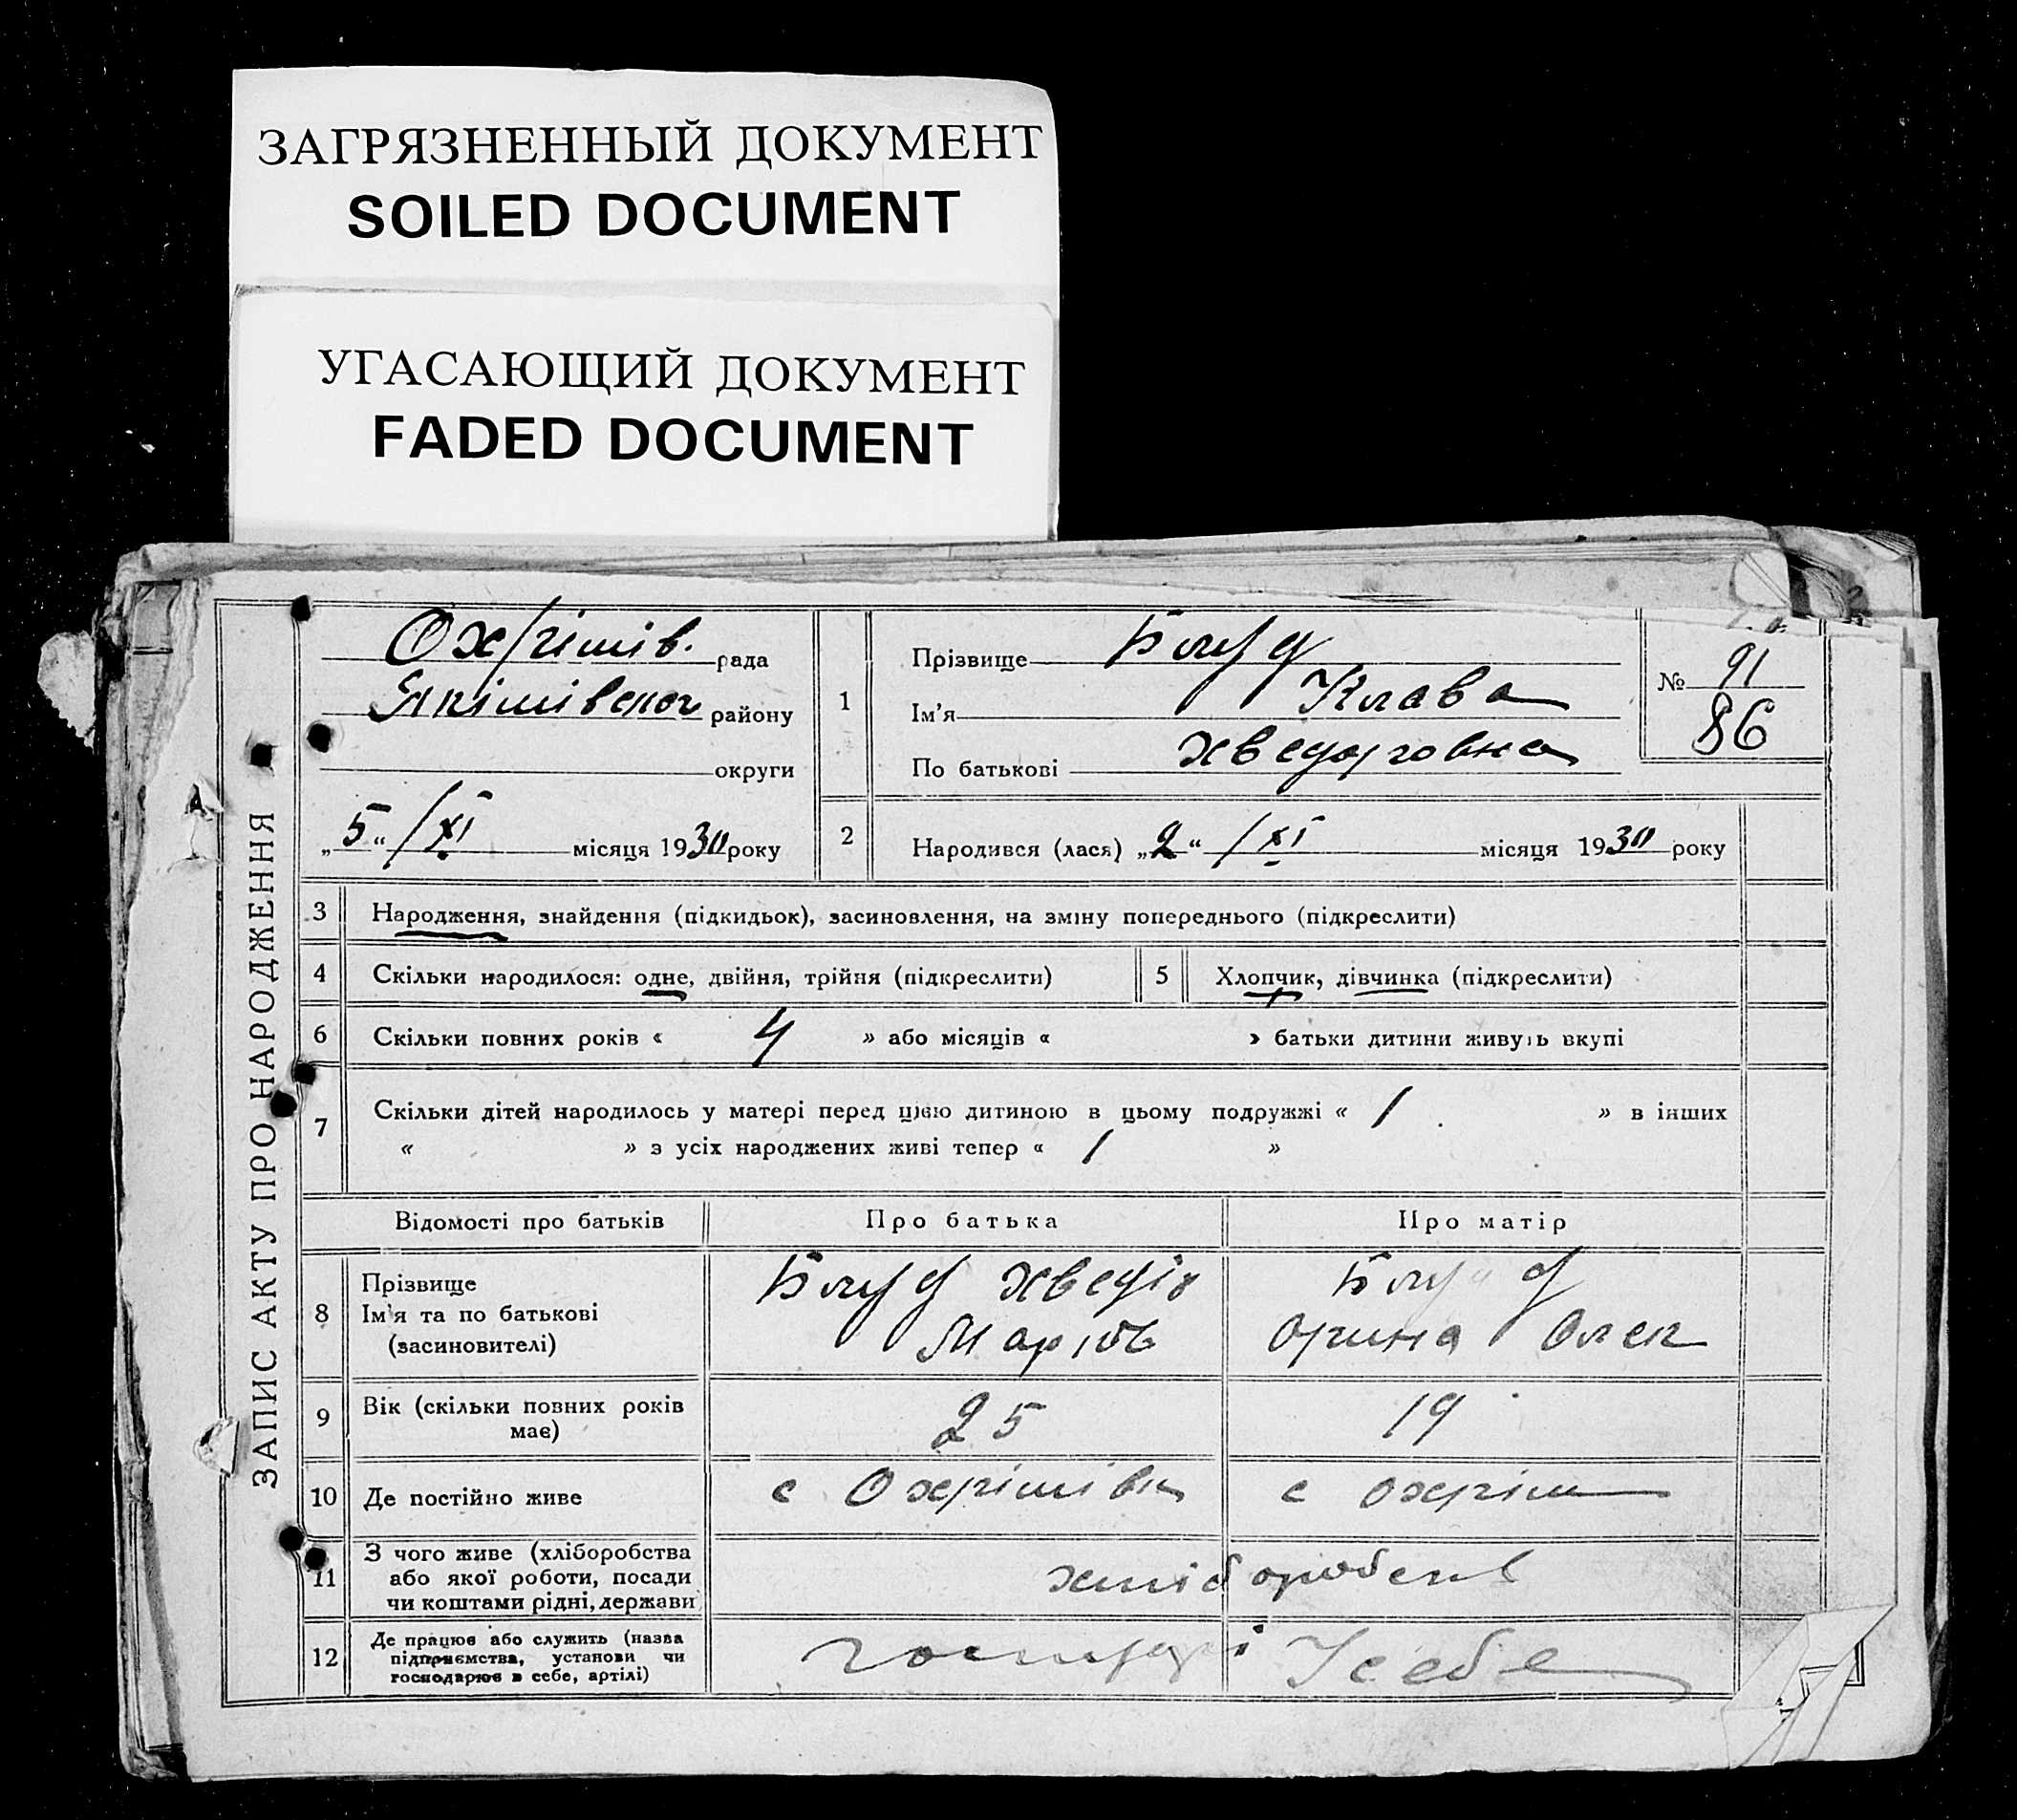 ЗАГРЯЗНЕННЫЙ ДОКУМЕНТ
SOILED DOCUMENT
УГАСАЮЩИЙ ДОКУМЕНТ
FADED DOCUMENT
ЗАПИС АКТУ ПРО НАРОДЖЕННЯ
Охрімів. рада
Якімівськ району
округи
„5“ /XI місяця 1930 року
1
Прізвище Блуд
Ім'я Клава
По батькові Хведоровна
№ 91
86
2
Народився (лася) „2“ /XI місяця 1930 року
3 Народження, знайдення (підкидьок), засиновлення, на зміну попереднього (підкреслити)
4 Скільки народилося: одне, двійня, трійня (підкреслити)
5 Хлопчик, дівчинка (підкреслити)
6 Скільки повних років « 4 » або місяців « » батьки дитини живуть вкупі
7 Скільки дітей народилось у матері перед цією дитиною в цьому подружжі « 1 » в інших
« » з усіх народжених живі тепер « 1 »
Відомості про батьків Про батька Про матір
8 Прізвище
Ім'я та по батькові
(засиновителі)
Блуд Хведір
Марков
Блуд
Орина Олек
9 Вік (скільки повних років
має)
25 19
10 Де постійно живе с Охрімівк с Охрім
11 З чого живе (хліборобства
або якої роботи, посади
чи коштами рідні, держави
хліборобств
12 Де працює або служить (назва
підприємства, установи чи
господарює в себе, артілі)
У себе